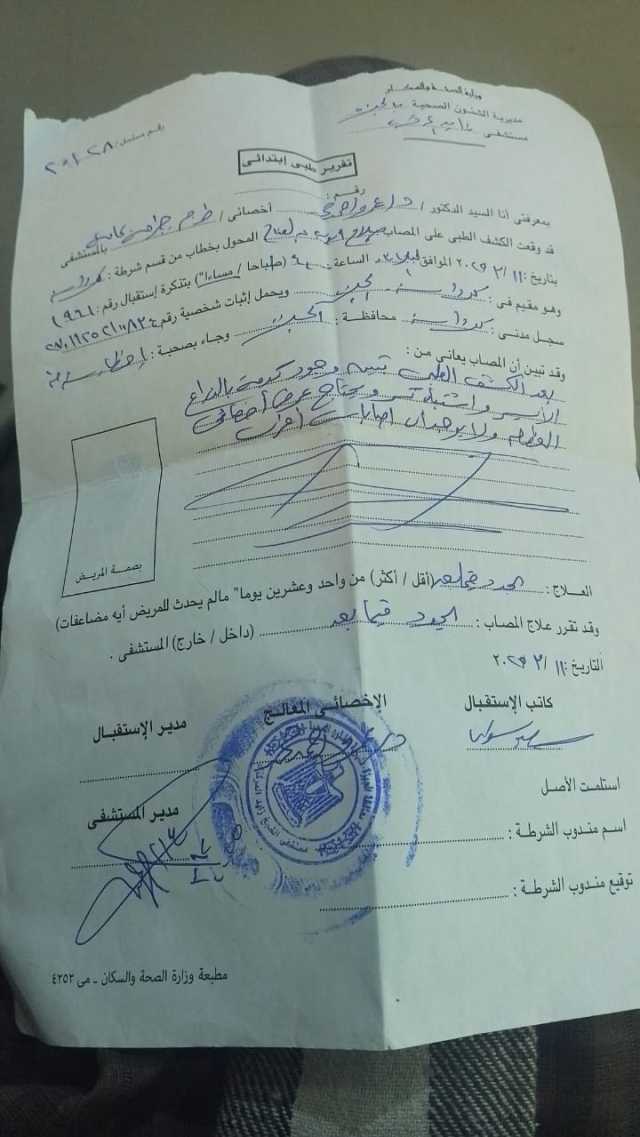 وزارة الصحة والسكان
مديرية الشئون الصحية بالجيزة
مستشفى
رقم مسلسل / ٢٥١٠٢٨
تقرير طبى إبتدائى
رقم :
بمعرفتى أنا السيد الدكتور / د/ عمرو أحمد أخصائى / جراحة
قد وقعت الكشف الطبى على المصاب صلاح المحول بخطاب من قسم شرطة : كرداسة بالمستشفى
بتاريخ : ١١ / ٣ / ٢٠٢٥ الموافق الساعة (صباحا / مساءا") بتذكرة إستقبال رقم : ١٩٦١
وهو مقيم فى : كرداسة الجيزة ويحمل إثبات شخصية رقم :
سجل مدنى : كرداسة محافظة : الجيزة وجاء بصحبة :
وقد تبين أن المصاب يعانى من :
بعد الكشف الطبى تبين وجود كدمة بالذراع
الأيسر واشتباه كسر ويحتاج عرض أخصائى
العظام ولا يوجد أى اصابات أخرى
بصمة المريض
العلاج : يحدد فيما بعد (أقل / أكثر) من واحد وعشرين يوما" مالم يحدث للمريض أيه مضاعفات)
وقد تقرر علاج المصاب : يحدد فيما بعد (داخل / خارج) المستشفى .
التاريخ : ١١ / ٣ / ٢٠٢٥
كاتب الإستقبال
الإخصائى المعالج
مدير الإستقبال
استلمت الأصل
مدير المستشفى
اسم مندوب الشرطة :
توقيع مندوب الشرطة :
مطبعة وزارة الصحة والسكان ـ مى ٤٢٥٣